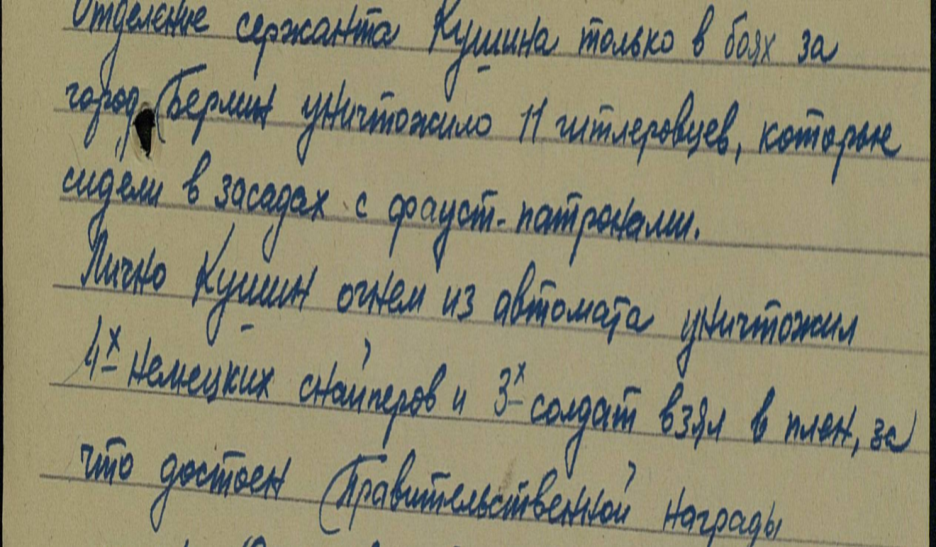 Отделение сержанта Кушина только в боях за
город Берлин уничтожило 11 гитлеровцев, которые
сидели в засадах с фауст-патронами.
Лично Кушин огнем из автомата уничтожил
4х немецких снайперов и 3х солдат взял в плен, за
что достоен Правительственной награды